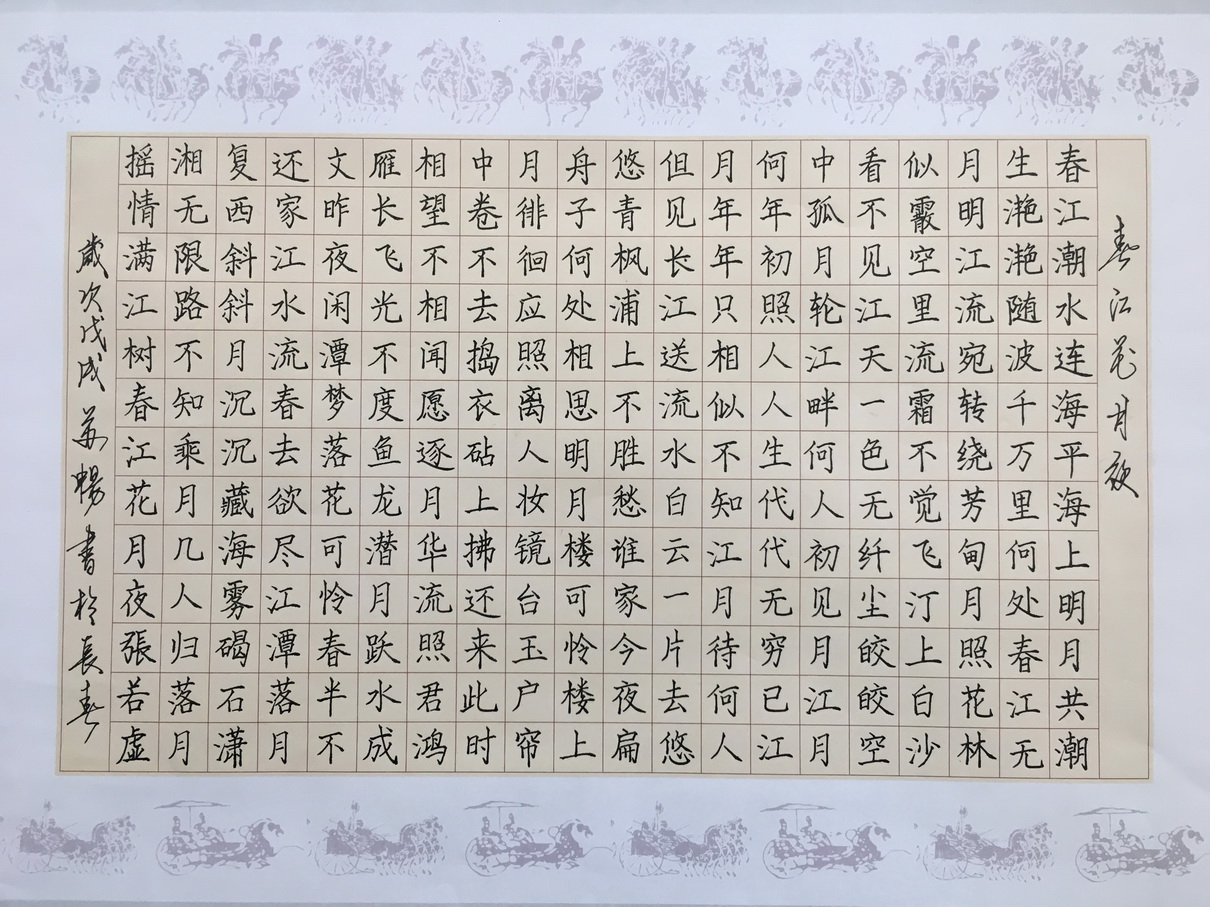 春江花月夜
春江潮水连海平海上明月共潮
生滟滟随波千万里何处春江无
月明江流宛转绕芳甸月照花林
似霰空里流霜不觉飞汀上白沙
看不见江天一色无纤尘皎皎空
中孤月轮江畔何人初见月江月
何年初照人人生代代无穷已江
月年年只相似不知江月待何人
但见长江送流水白云一片去悠
悠青枫浦上不胜愁谁家今夜扁
舟子何处相思明月楼可怜楼上
月徘徊应照离人妆镜台玉户帘
中卷不去捣衣砧上拂还来此时
相望不相闻愿逐月华流照君鸿
雁长飞光不度鱼龙潜月跃水成
文昨夜闲潭梦落花可怜春半不
还家江水流春去欲尽江潭落月
复西斜斜月沉沉藏海雾碣石潇
湘无限路不知乘月几人归落月
摇情满江树春江花月夜張若虚
歲次戊戌苏暢書於長春